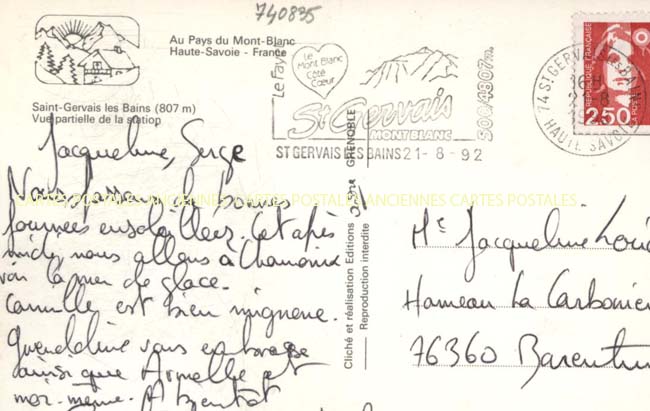 740835
Au Pays du Mont-Blanc
Haute-Savoie - France
Saint-Gervais les Bains (807 m)
Vue partielle de la station
Le Fayet
Le Mont Blanc
Côté
Cœur
St Gervais
MONT BLANC
800/4807m.
ST GERVAIS LES BAINS 21-8-92
74 ST GERVAIS LES BAINS
16H
HAUTE SAVOIE
RÉPUBLIQUE FRANÇAISE
2,50
Jacqueline, Serge
Nous passons de bonnes
journées ensoleillées. Cet après
midi, nous allons à Chamonix
voir la mer de glace.
Camille est bien mignonne.
Gwendoline vous embrasse
ainsi que Armelle et
moi-même. A Bientôt
CARTES POSTALES ANCIENNES CARTES POSTALES ANCIENNES CARTES POSTALES
Cliché et réalisation Editions GRENOBLE
Reproduction interdite
Me Jacqueline
Hameau La Carbonier
76360 Barentin